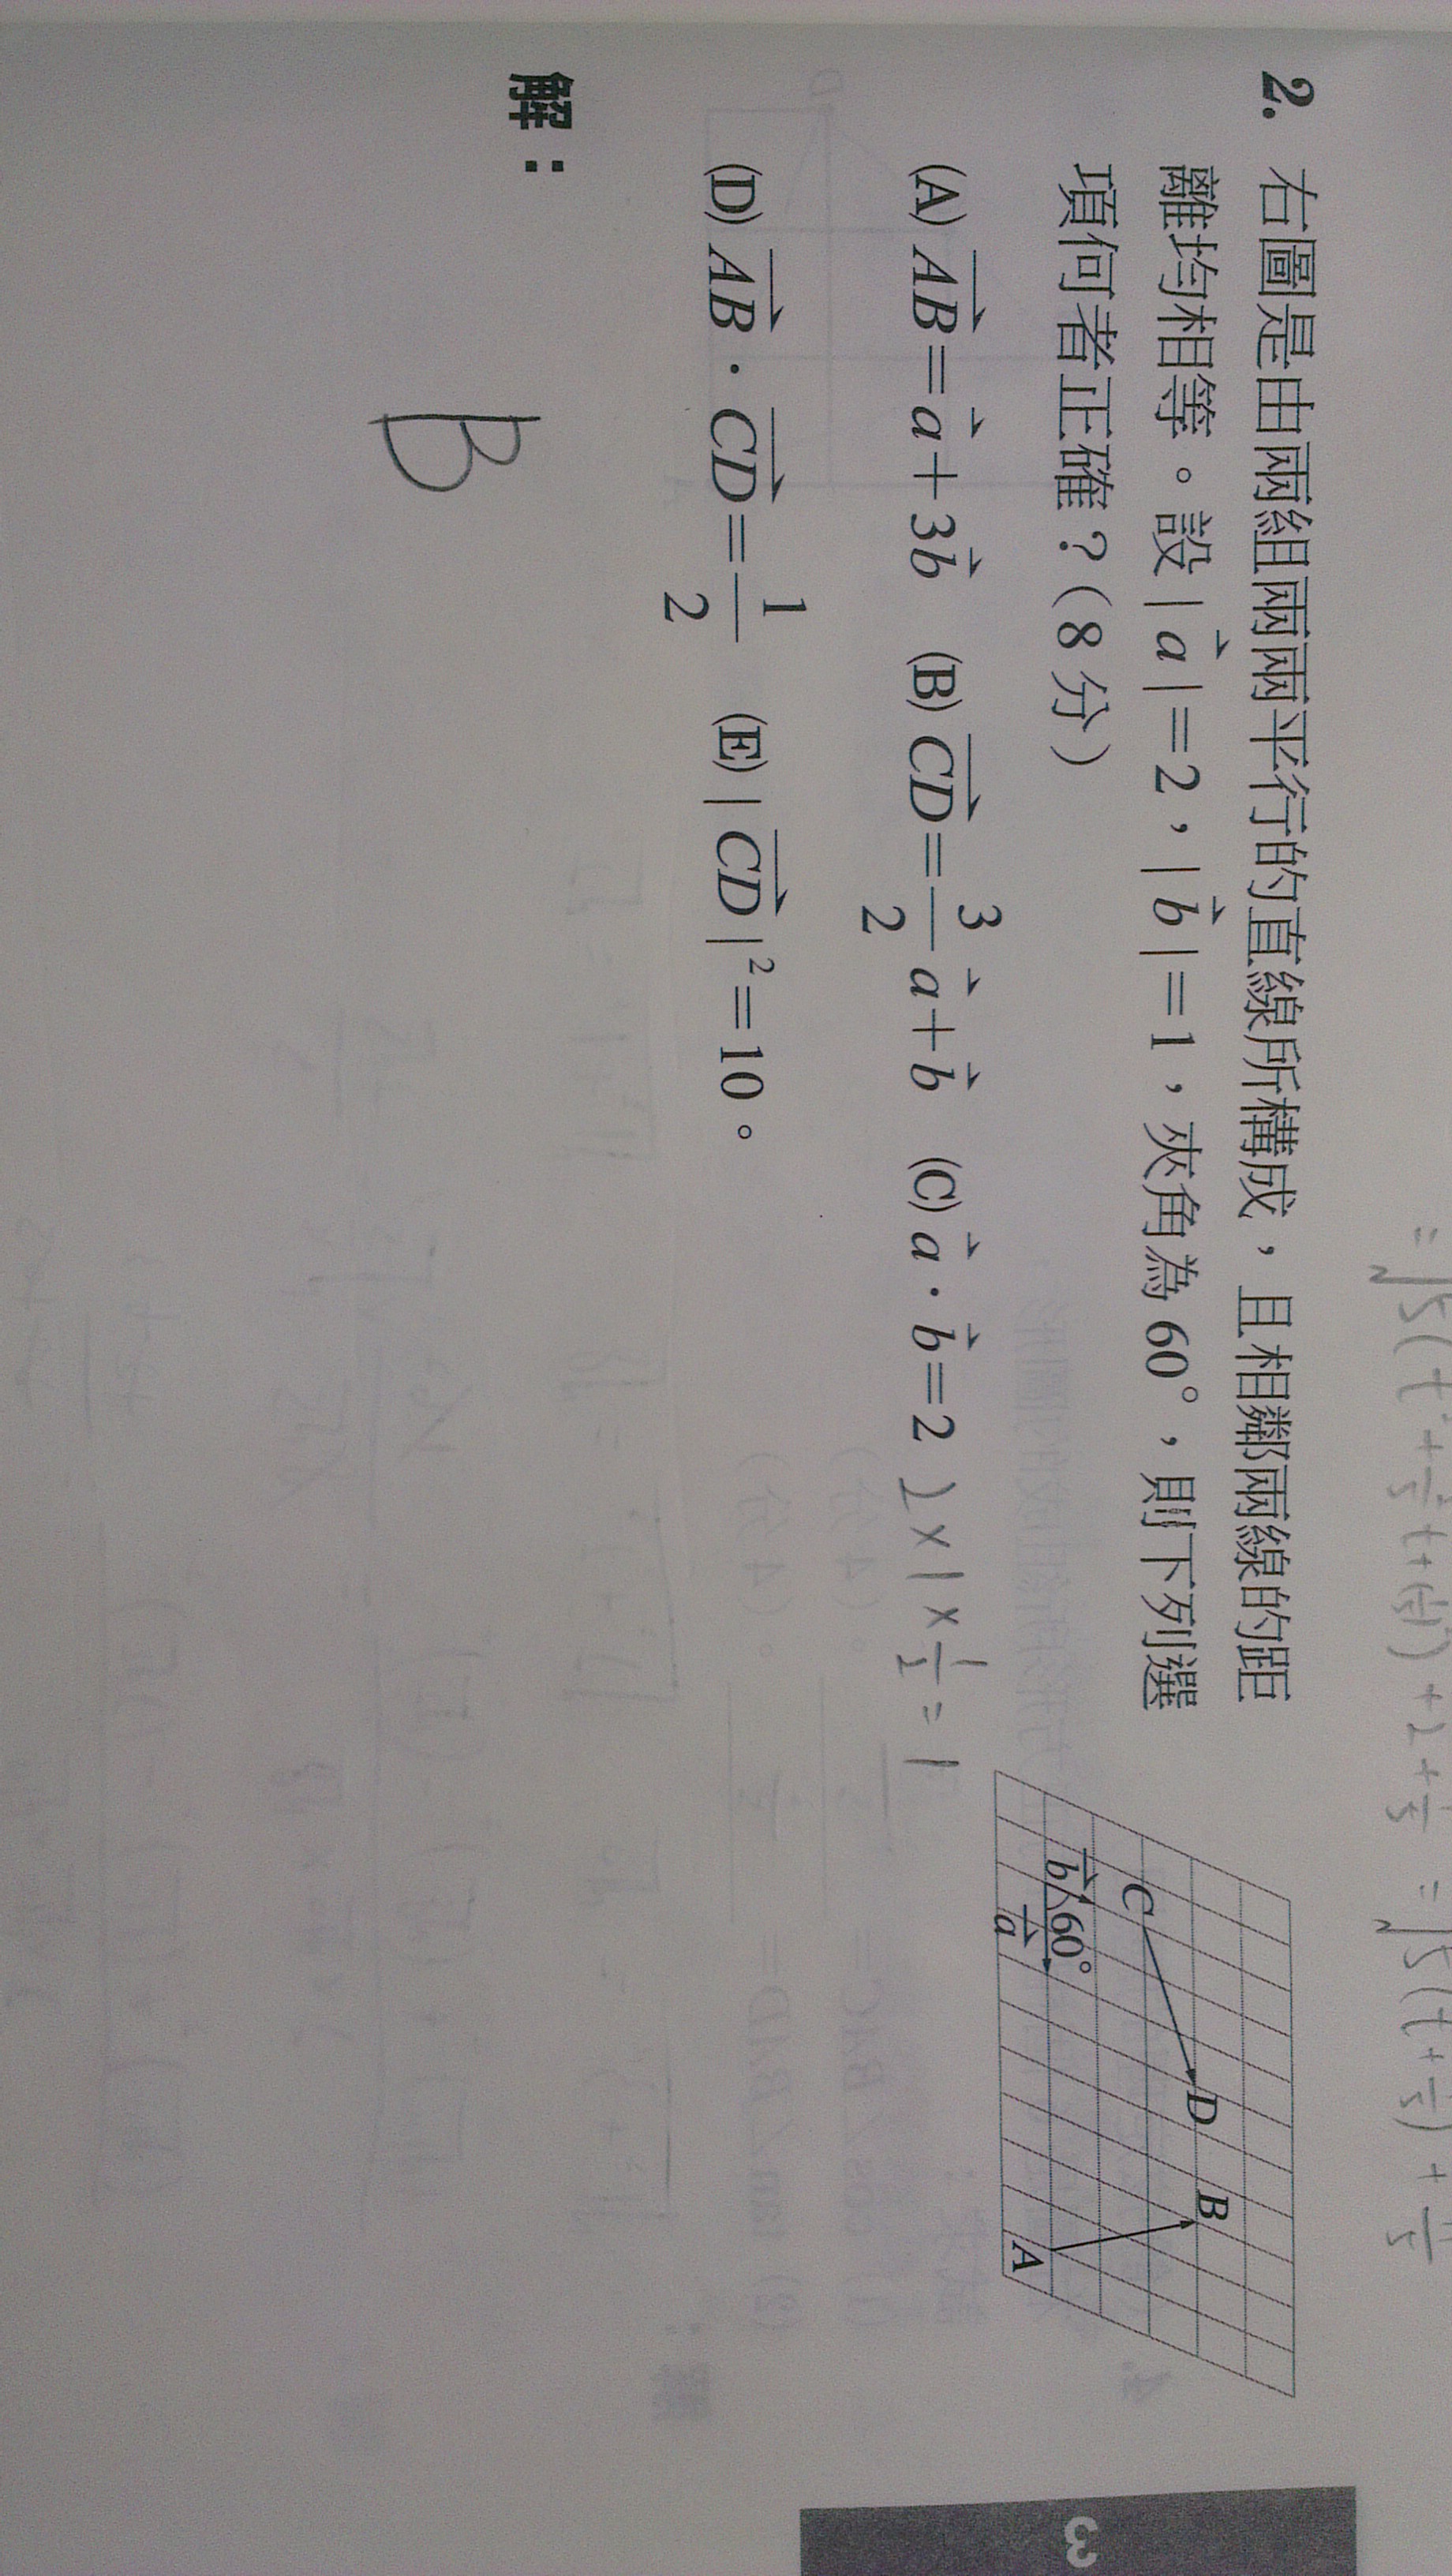 = √2(t²+½t+(¼)²)+2+½ = √2(t+½)+½
2. 右圖是由兩組兩兩平行的直線所構成，且相鄰兩線的距
離均相等。設 | a⃗ |=2，| b⃗ |=1，夾角為 60°，則下列選
項何者正確？(8 分)
(A) AB⃗=a⃗+3b⃗ (B) CD⃗=3/2 a⃗+b⃗ (C) a⃗·b⃗=2 2×1×½=1
(D) AB⃗·CD⃗=1/2 (E) | CD⃗ |²=10。
解：
B
C D B A
b⃗ 60° a⃗
3